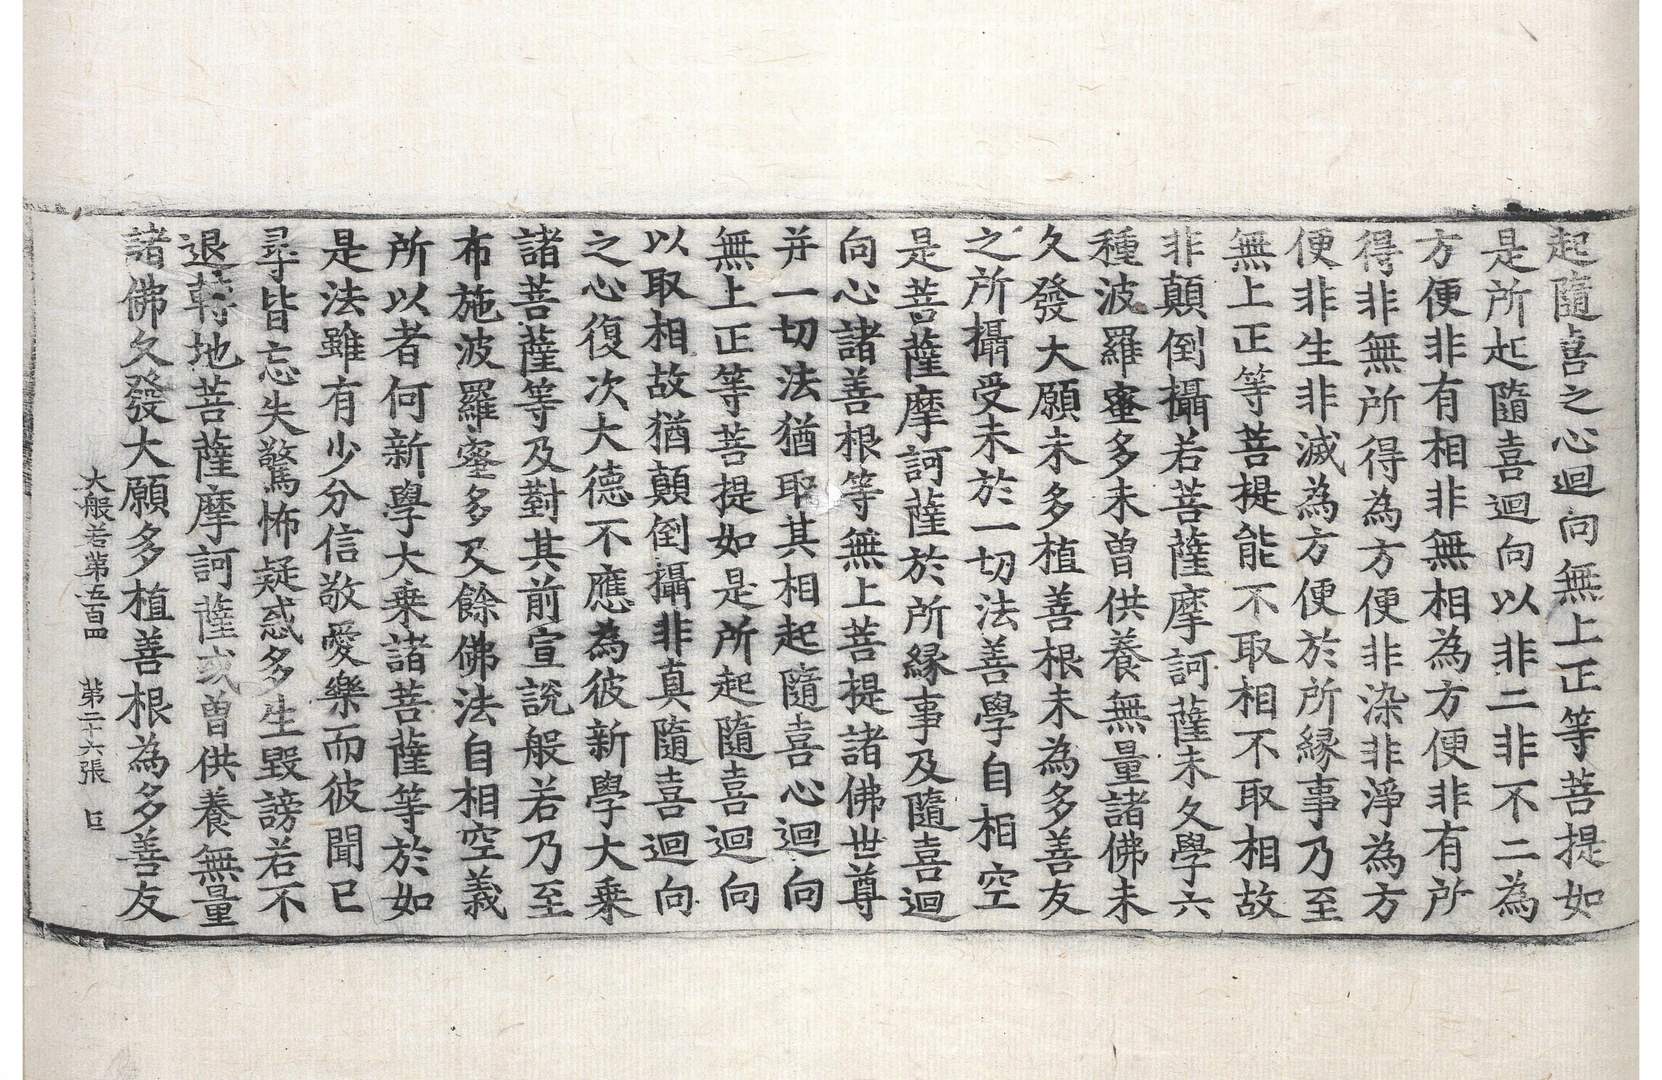 起隨喜之心迴向無上正等菩提如
是所起隨喜迴向以非二非不二為
方便非有相非無相為方便非有所
得非無所得為方便非染非淨為方
便非生非滅為方便於所縁事乃至
無上正等菩提能不取相不取相故
非顛倒攝若菩薩摩訶薩未久學六
種波羅蜜多未曾供養無量諸佛未
久發大願未多植善根未為多善友
之所攝受未於一切法善學自相空
是菩薩摩訶薩於所縁事及隨喜迴
向心諸善根等無上菩提諸佛世尊
并一切法猶取其相起隨喜心迴向
無上正等菩提如是所起隨喜迴向
以取相故猶顛倒攝非真隨喜迴向
之心復次大德不應為彼新學大乗
諸菩薩等及對其前宣説般若乃至
布施波羅蜜多及餘佛法自相空義
所以者何新學大乗諸菩薩等於如
是法雖有少分信敬愛樂而彼聞已
尋皆忘失驚怖疑惑多生毀謗若不
退轉地菩薩摩訶薩或曽供養無量
諸佛久發大願多植善根為多善友
大般若第五百四　第二十六張　巨